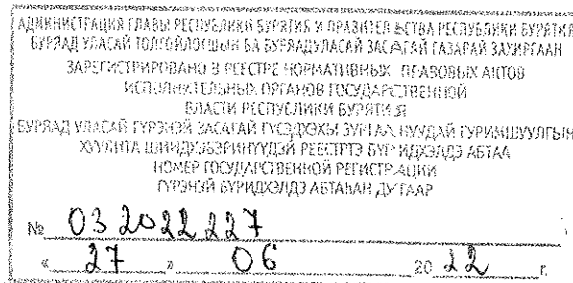 АДМИНИСТРАЦИЯ ГЛАВЫ РЕСПУБЛИКИ БУРЯТИЯ И ПРАВИТЕЛЬСТВА РЕСПУБЛИКИ БУРЯТИЯ
БУРЯАД УЛАСАЙ ТОЛГОЙЛОГШЫН БА БУРЯАД УЛАСАЙ ЗАСАГАЙ ГАЗАРАЙ ЗАХИРГААН
ЗАРЕГИСТРИРОВАНО В РЕЕСТРЕ НОРМАТИВНЫХ ПРАВОВЫХ АКТОВ
ИСПОЛНИТЕЛЬНЫХ ОРГАНОВ ГОСУДАРСТВЕННОЙ
ВЛАСТИ РЕСПУБЛИКИ БУРЯТИЯ
БУРЯАД УЛАСАЙ ГҮРЭНЭЙ ЗАСАГАЙ ГҮСЭДХЭХЫ ЗУРГАА НУУДАЙ ГУРИМШУУЛГЫН
ХУУЛИТА ШИИДХЭБЭРИНҮҮДЭЙ РЕЕСТРТЭ БҮРИДХЭЛДЭ АБТАА
НОМЕР ГОСУДАРСТВЕННОЙ РЕГИСТРАЦИИ
ГҮРЭНЭЙ БҮРИДХЭЛДЭ АБТАҺАН ДУГААР
№ 03 2022 227
« 27 » 06 20 22 г.